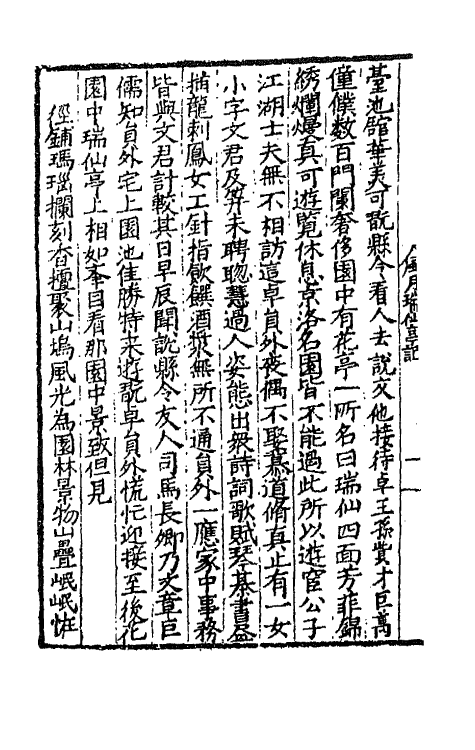 臺池舘華美可翫縣令看人去說交他接待卓王孫貲才巨萬
僮僕数百門闌奢侈園中有花亭一所名曰瑞仙四面芳菲錦
綉爛熳真可遊覧休息京洛名園皆不能過此所以遊宦公子
江湖士夫無不相訪這卓員外偶不娶慕道脩真止有一女
小字文君及笄未聘聦慧過人姿態出衆詩詞歌賦琴棊書畫
描龍刺鳳女工針指飲饌酒漿無所不通員外一應家中事務
皆與文君計較其日早辰聞說縣令友人司馬長卿乃文章巨
儒知員外宅上園池佳勝特来遊翫卓員外慌忙迎接至後花
園中瑞仙亭上相如目看那園中景致但見
徑鋪瑪瑙欄刻香檀聚山塢風光為園林景物山疊岷岷恠